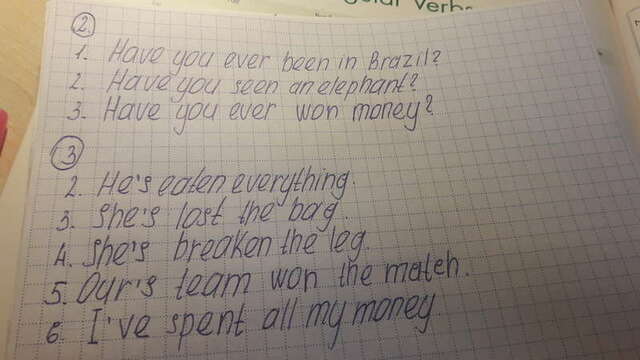 gular Verbs
2.
1. Have you ever been in Brazil?
2. Have you seen an elephant?
3. Have you ever won money?
3
2. He's eaten everything.
3. She's lost the bag.
4. She's breaken the leg.
5. Our's team won the match.
6. I've spent all my money.